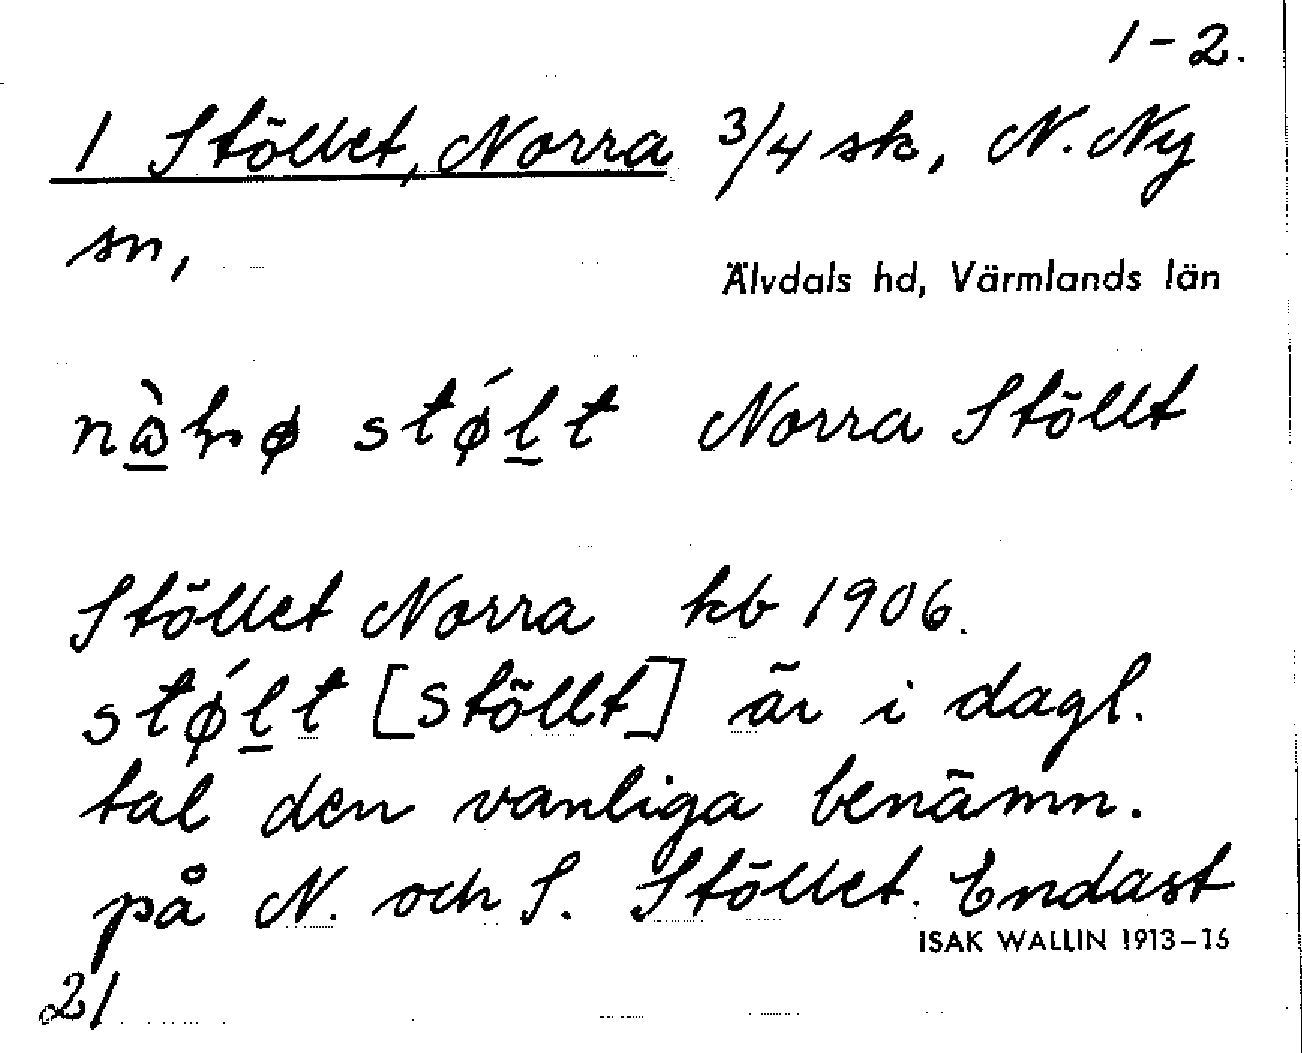 1-2.
1 Stöllet, Norra 3/4 sk, N. Ny
sn,
Älvdals hd, Värmlands län
stǿl̲t Norra Stöllt
Stöllet Norra kb 1906.
stǿl̲t [Stöllt] är i dagl.
tal den vanliga benämn.
på N. och S. Stöllet. Endast
ISAK WALLIN 1913-15
21